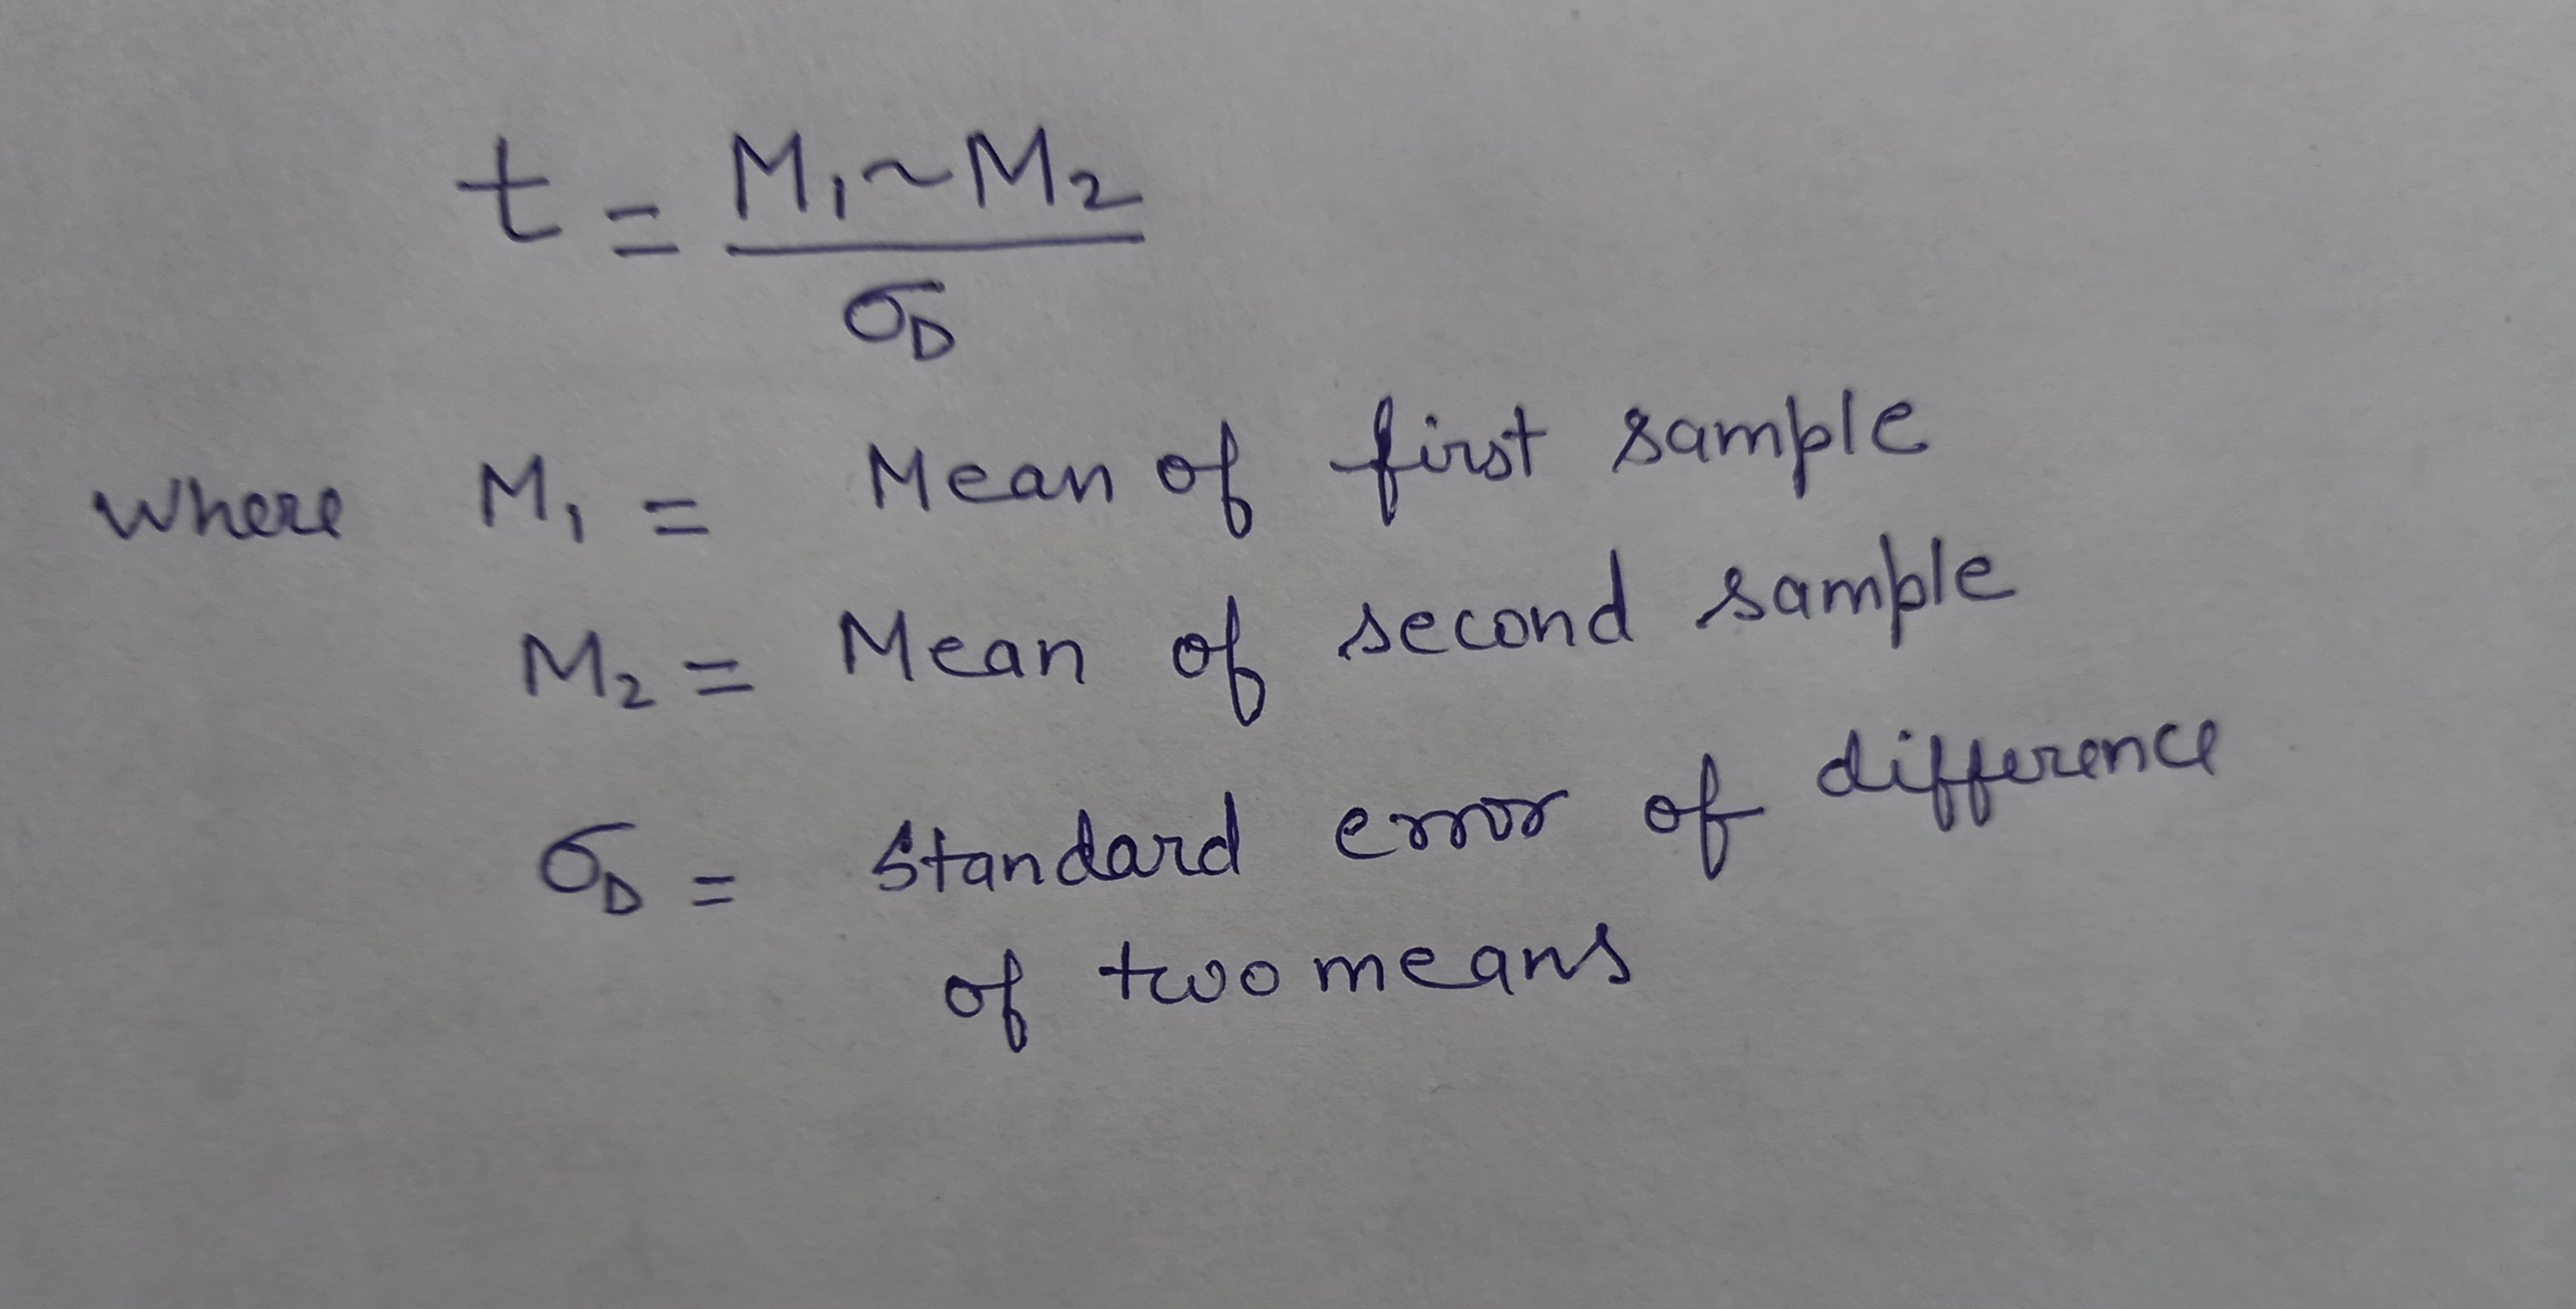 t = M₁ ~ M₂
σD
where M₁ = Mean of first sample
M₂ = Mean of second sample
σD = Standard error of difference
of two means